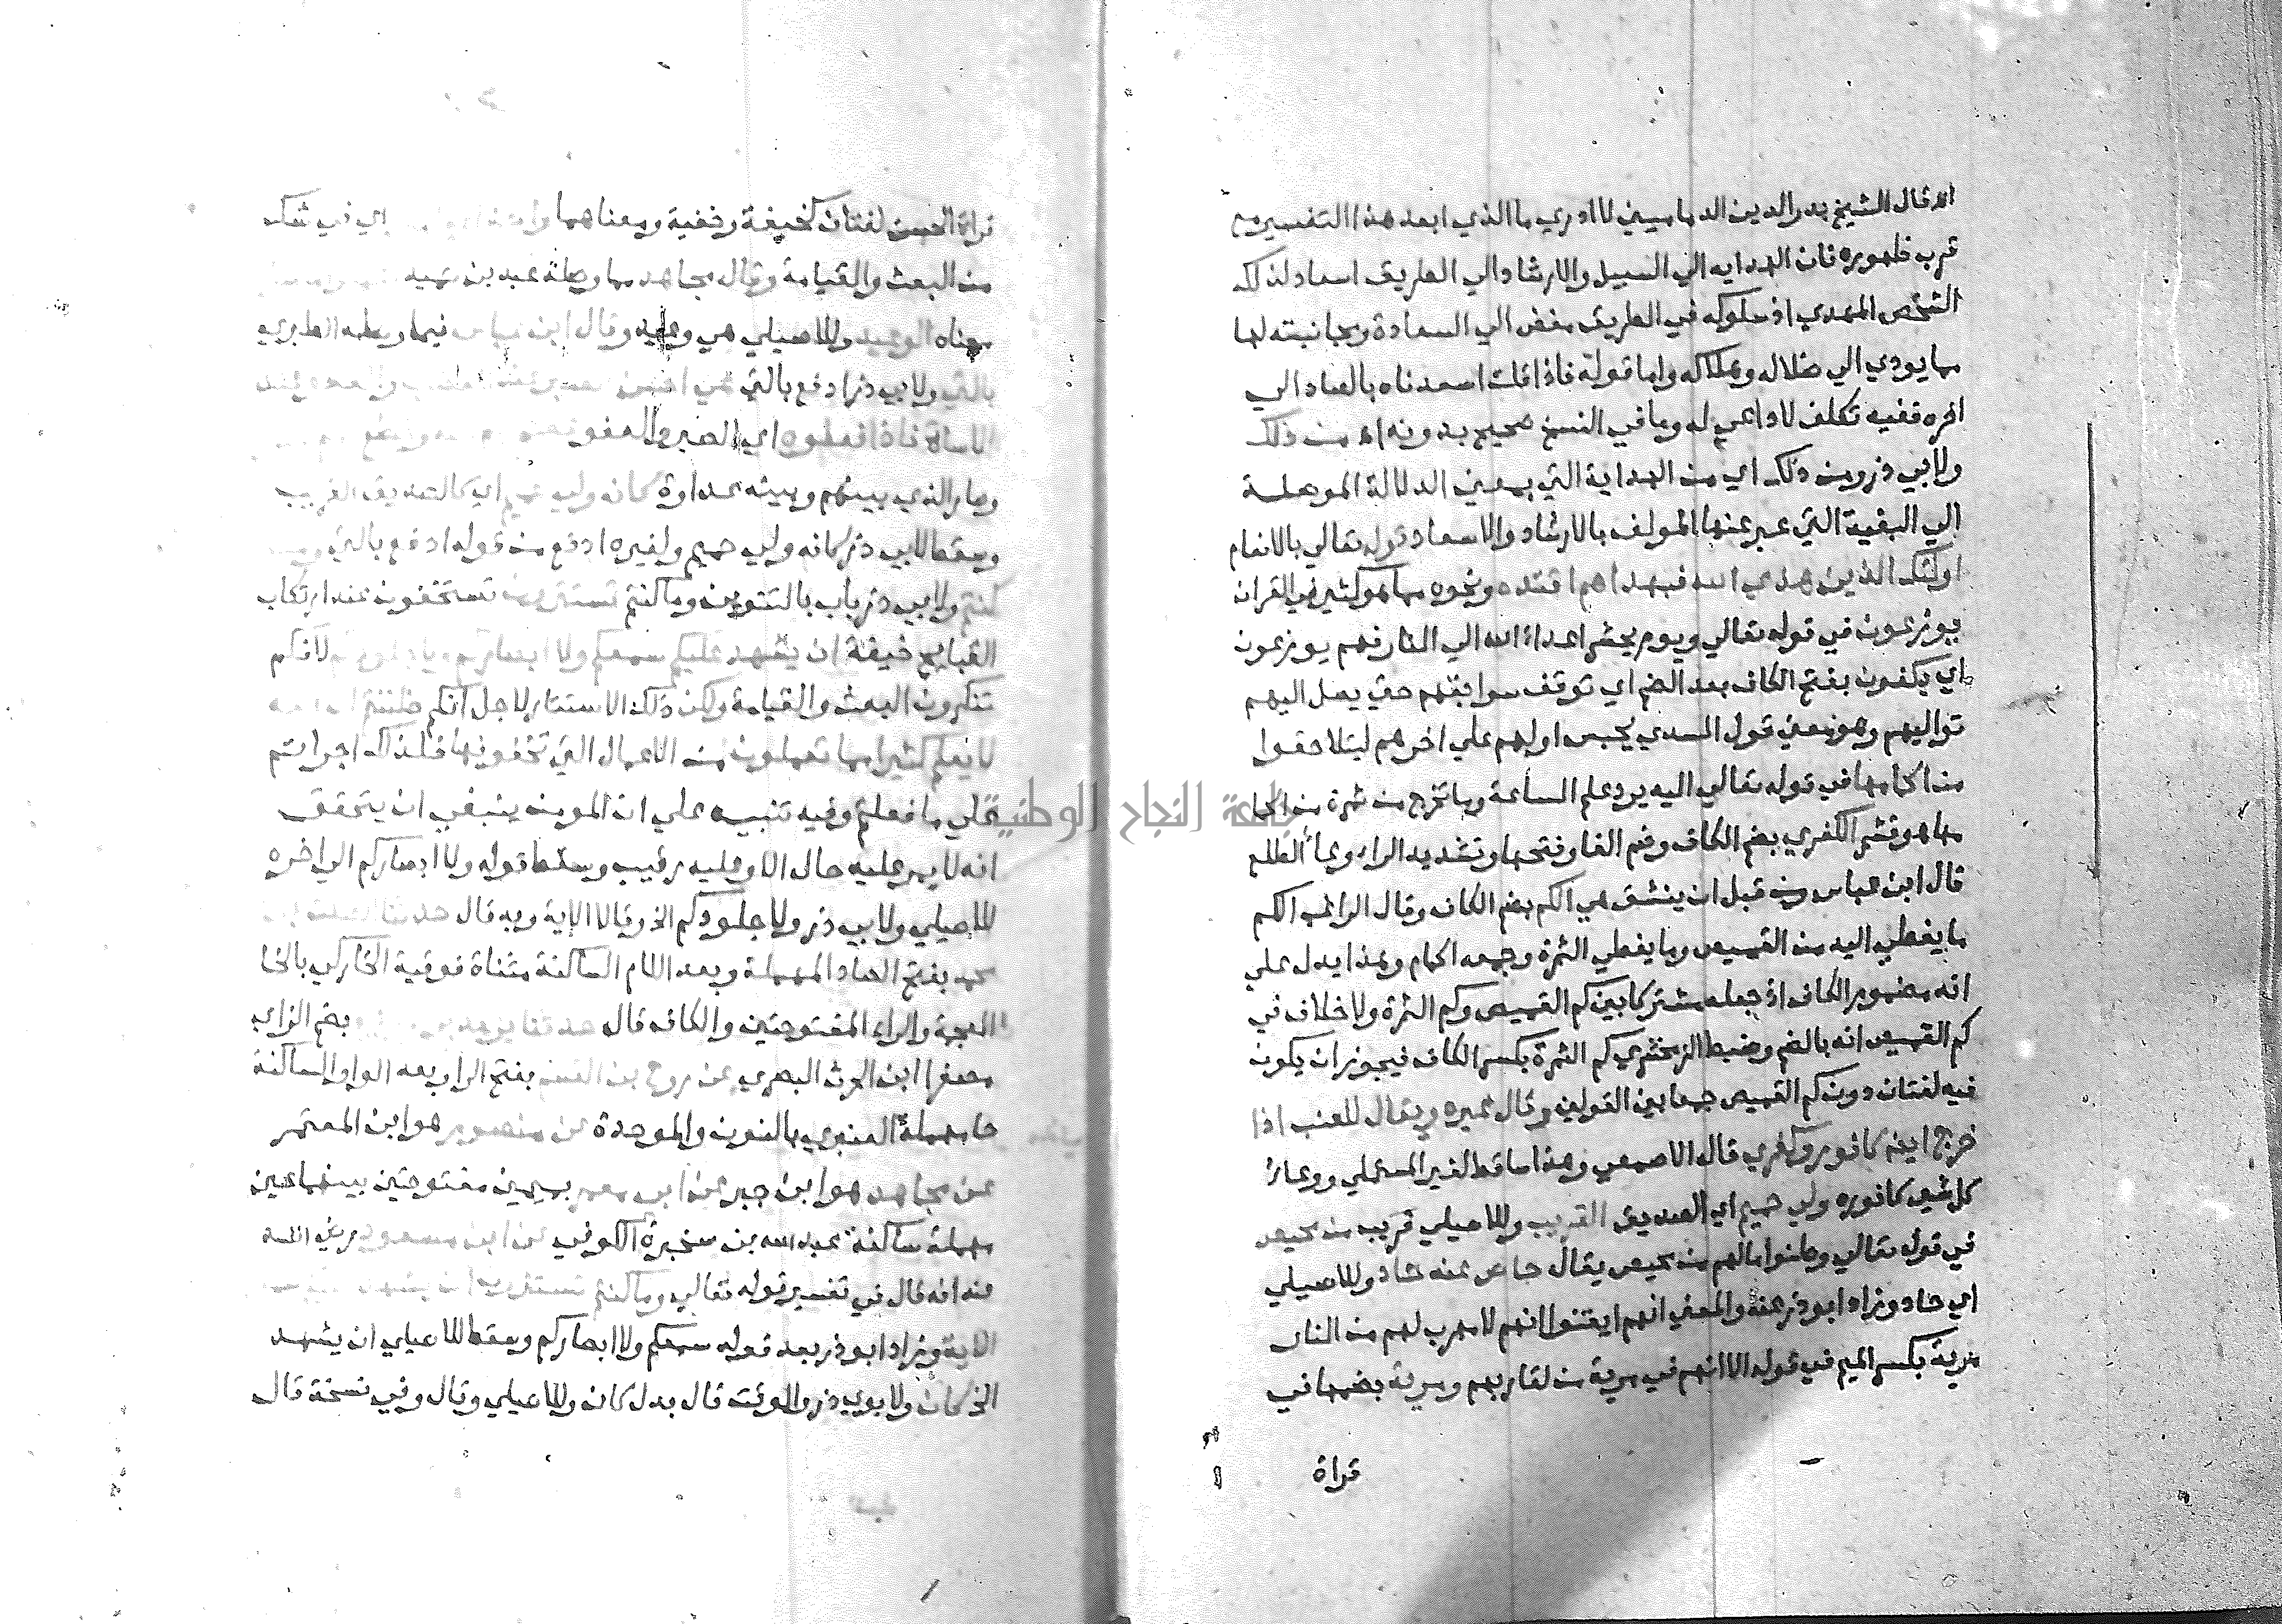 اه قال الشيخ بدر الدين الدماميني لا ادري ما الذي ابعد هذا التفسير مع
قرب ظهوره فان الهداية الي السبيل والارشاد الي الطريق اسعاد لذلك
الشخص المهدي اذ سلوكه في الطريق مفض الي السعادة ومجانبته لها
مما يودي الي ضلاله وهلاكه واما قوله فاذا قلت اصعدناه بالصاد الي
اخره ففيه تكلف لا داعي له وما في النسخ صحيح بدونه اه من ذلك
ولابي ذر ومن ذلك اي من الهداية التي بمعني الدلالة الموصلة
الي البغية التي عبر عنها المولف بالارشاد والاسعاد قوله تعالي بالانعام
اولئك الذين هدي الله فبهداهم اقتده ونحوه مما هو كثير في القران
يوزعون في قوله تعالي ويوم يحشر اعداء الله الي النار فهم يوزعون
اي يكفون بفتح الكاف بعد الضم اي توقف سوابقهم حتي يصل اليهم
تواليهم وهو معني قول السدي يحبس اولهم علي اخرهم ليتلاحقوا
من اكمامها في قوله تعالي اليه يرد علم الساعة وما تخرج من ثمرة من اكما
مها هو قشر الكفري بضم الكاف وضم الفا وفتحها وتشديد الراء وعاء الطلع
قال ابن عباس قبل ان ينشق هي الكم بضم الكاف وقال الراغب الكم
ما يغطي اليد من القميص وما يغطي الثمرة وجمعه اكمام وهذا يدل علي
انه مضموم الكاف اذ جعله مشتركا بين كم القميص وكم الثمرة ولا خلاف في
كم القميص انه بالضم وضبط الزمخشري كم الثمرة بكسر الكاف فيجوز ان يكون
فيه لغتان دون كم القميص جمعا بين القولين وقال غيره ويقال للعنب اذا
خرج ايضا كافور وكفري قال الاصمعي وهذا ساقط لغير المستملي ووعاء
كل شي كافوره ولي حميم اي الصديق القريب وللاصيلي قريب من محيص
في قوله تعالي وظنوا ما لهم من محيص يقال حاص عنه حاد وللاصيلي
اي حاد وزاد ابو ذر عنه والمعني انهم ايقنوا انهم لا مهرب لهم من النار
مرية بكسر الميم في قوله الا انهم في مرية من لقا ربهم ومرية بضمها في
قراة
قراة الحسن لغتان كخيفة وخفية ومعناهما اي في شك
من البعث والقيامة وقال مجاهد مما وصله عبد بن حميد
معناه الوعيد وللاصيلي هي وعيد وقال ابن عباس فيما وصله الطبري
بالتي ولابي ذر ادفع بالتي هي احسن
الاساة فاذا فعلوه اي الصبر والعفو
وصار الذي بينهم وبينه عداوة كانه ولي حميم اي كالصديق القريب
وسقط لابي ذر كانه ولي حميم ولغيره ادفع من قوله ادفع بالتي
كنتم ولابي ذر باب بالتنوين وما كنتم تستترون تستخفون عند ارتكاب
القبايح خيفة ان يشهد عليكم سمعكم ولا ابصاركم ولا جلودكم لانكم
تنكرون البعث والقيامة ولكن ذلك الاستتار لاجل انكم ظننتم
لا يعلم كثيرا مما تعملون من الاعمال التي تخفونها فلذلك اجراتم
علي ما فعلتم وفيه تنبيه علي ان المومن ينبغي ان يتحقق
انه لا يمر عليه حال الا وعليه رقيب وسقط قوله ولا ابصاركم الي اخره
للاصيلي ولابي ذر ولا جلودكم الخ وقالا الاية وبه قال حدثنا الصلت بن
محمد بفتح الصاد المهملة وبعد اللام الساكنة مثناة فوقية الخاركي بالخا
المعجمة والراء المفتوحتين والكاف قال حدثنا يزيد بضم الزاي
مصغرا ابن الحرث البصري عن روح بن القسم بفتح الراء وبعد الواو الساكنة
حا مهملة العنبري بالنون والموحدة عن منصور هو ابن المعتمر
عن مجاهد هو ابن جبر عن ابي معمر بميمين مفتوحتين بينهما عين
مهملة ساكنة عبد الله بن سخبرة الكوفي عن ابن مسعود رضي الله
عنه انه قال في تفسير قوله تعالي وما كنتم تستترون ان يشهد
الاية وزاد ابو ذر بعد قوله سمعكم ولا ابصاركم وسقط للاصيلي ان يشهد
الخ كان ولابوي ذر والوقت قال بدل كان وللاصيلي وقال وفي نسخة قال
جامعة النجاح الوطنية